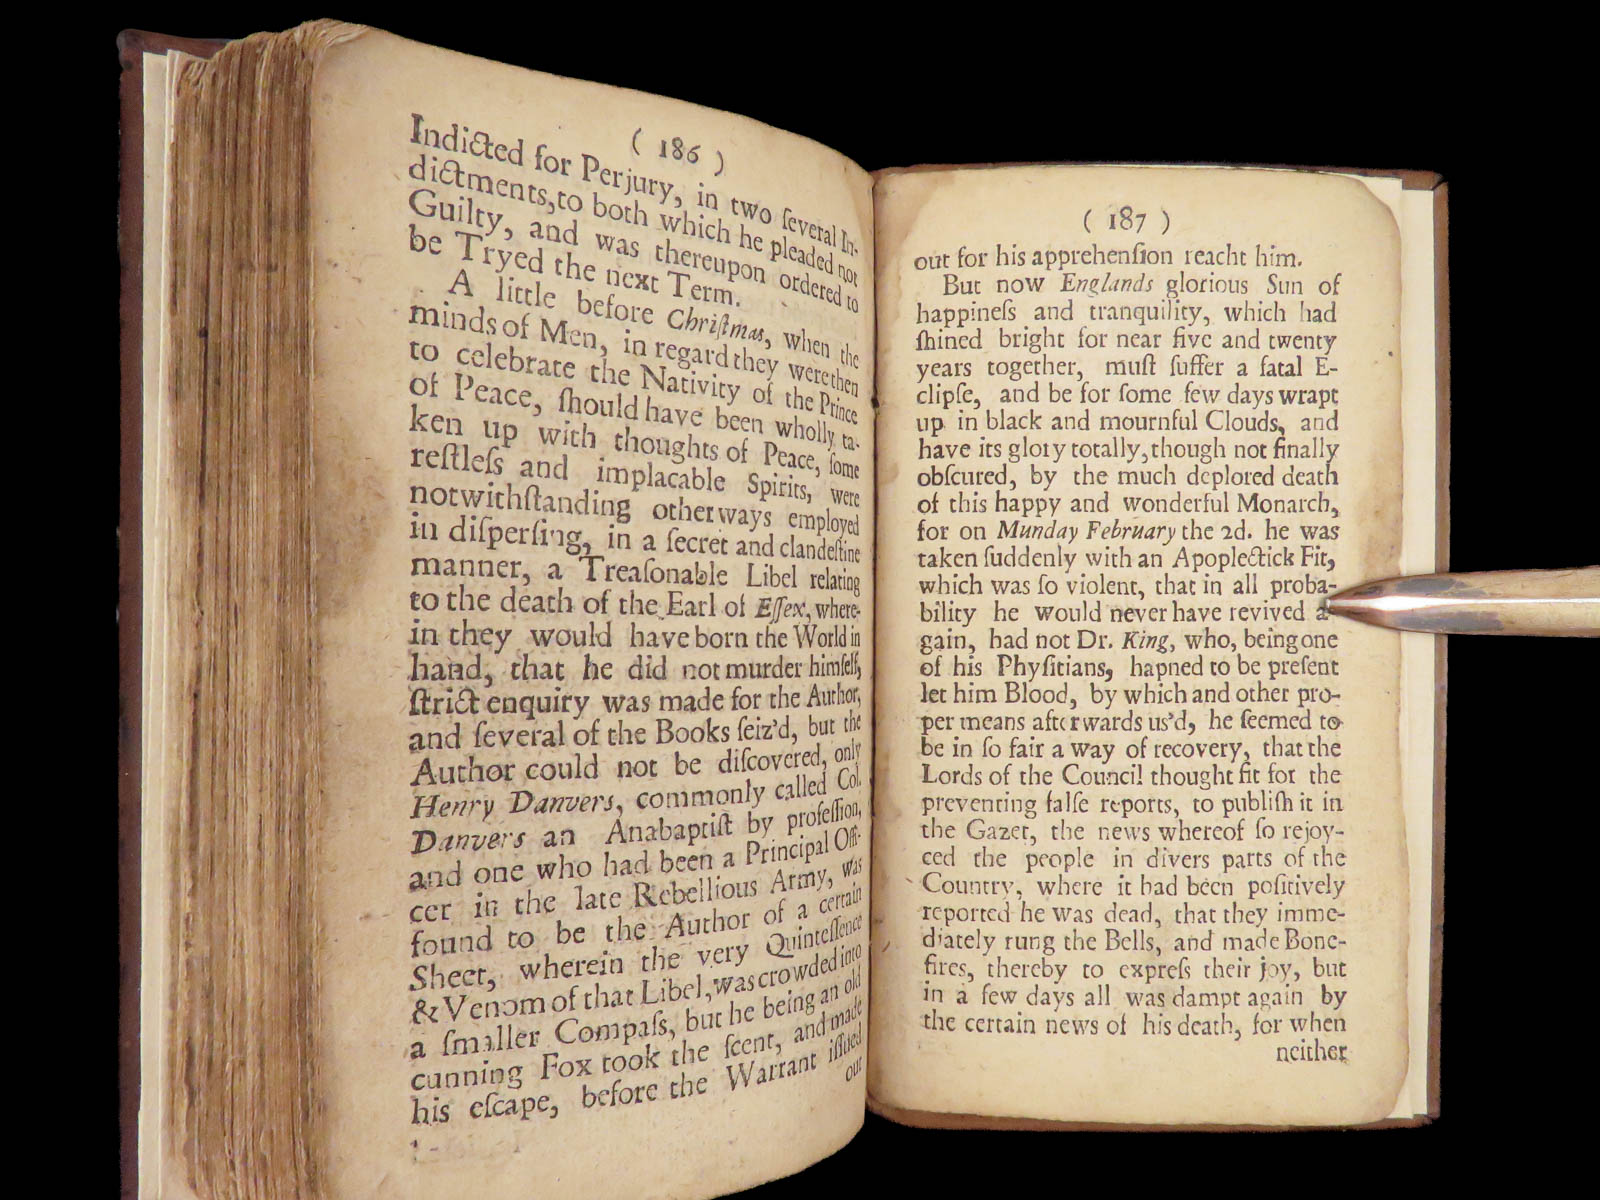 ( 186 )
Indicted for Perjury, in two ſeveral In-
dictments, to both which he pleaded not
Guilty, and was thereupon ordered to
be Tryed the next Term.
A little before Chriſtmas, when the
minds of Men, in regard they were then
to celebrate the Nativity of the Prince
of Peace, ſhould have been wholly ta-
ken up with thoughts of Peace, ſome
reſtleſs and implacable Spirits, were
notwithſtanding otherways employed
in diſperſing, in a ſecret and clandeſtine
manner, a Treaſonable Libel relating
to the death of the Earl of Eſſex, where-
in they would have born the World in
hand, that he did not murder himſelf,
ſtrict enquiry was made for the Author,
and ſeveral of the Books ſeiz'd, but the
Author could not be diſcovered, only
Henry Danvers, commonly called Col.
Danvers an Anabaptiſt by profeſſion,
and one who had been a Principal Offi-
cer in the late Rebellious Army, was
found to be the Author of a certain
Sheet, wherein the very Quinteſſence
& Venom of that Libel, was crowded into
a ſmaller Compaſs, but he being an old
cunning Fox took the ſcent, and made
his eſcape, before the Warrant iſſued
out
( 187 )
out for his apprehenſion reacht him.
But now Englands glorious Sun of
happineſs and tranquility, which had
ſhined bright for near five and twenty
years together, muſt ſuffer a fatal E-
clipſe, and be for ſome few days wrapt
up in black and mournful Clouds, and
have its glory totally, though not finally
obſcured, by the much deplored death
of this happy and wonderful Monarch,
for on Munday February the 2d. he was
taken ſuddenly with an Apoplectick Fit,
which was ſo violent, that in all proba-
bility he would never have revived a-
gain, had not Dr. King, who, being one
of his Phyſitians, hapned to be preſent
let him Blood, by which and other pro-
per means afterwards us'd, he ſeemed to
be in ſo fair a way of recovery, that the
Lords of the Council thought fit for the
preventing falſe reports, to publiſh it in
the Gazet, the news whereof ſo rejoy-
ced the people in divers parts of the
Country, where it had been poſitively
reported he was dead, that they imme-
diately rung the Bells, and made Bone-
fires, thereby to expreſs their joy, but
in a few days all was dampt again by
the certain news of his death, for when
neither